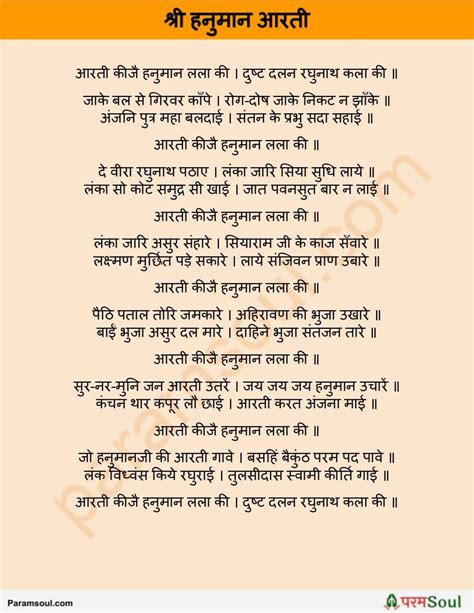 श्री हनुमान आरती
आरती कीजै हनुमान लला की । दुष्ट दलन रघुनाथ कला की ॥
जाके बल से गिरवर काँपे । रोग-दोष जाके निकट न झाँके ॥
अंजनि पुत्र महा बलदाई । संतन के प्रभु सदा सहाई ॥
आरती कीजै हनुमान लला की ॥
दे वीरा रघुनाथ पठाए । लंका जारि सिया सुधि लाये ॥
लंका सो कोट समुद्र सी खाई । जात पवनसुत बार न लाई ॥
आरती कीजै हनुमान लला की ॥
लंका जारि असुर संहारे । सियाराम जी के काज सँवारे ॥
लक्ष्मण मुर्छित पड़े सकारे । लाये संजिवन प्राण उबारे ॥
आरती कीजै हनुमान लला की ॥
पैठि पताल तोरि जमकारे । अहिरावण की भुजा उखारे ॥
बाईं भुजा असुर दल मारे । दाहिने भुजा संतजन तारे ॥
आरती कीजै हनुमान लला की ॥
सुर-नर-मुनि जन आरती उतरें । जय जय जय हनुमान उचारें ॥
कंचन थार कपूर लौ छाई । आरती करत अंजना माई ॥
आरती कीजै हनुमान लला की ॥
जो हनुमानजी की आरती गावे । बसहिं बैकुंठ परम पद पावे ॥
लंक विध्वंस किये रघुराई । तुलसीदास स्वामी कीर्ति गाई ॥
आरती कीजै हनुमान लला की । दुष्ट दलन रघुनाथ कला की ॥
paramsoul.com
Paramsoul.com
परमSoul